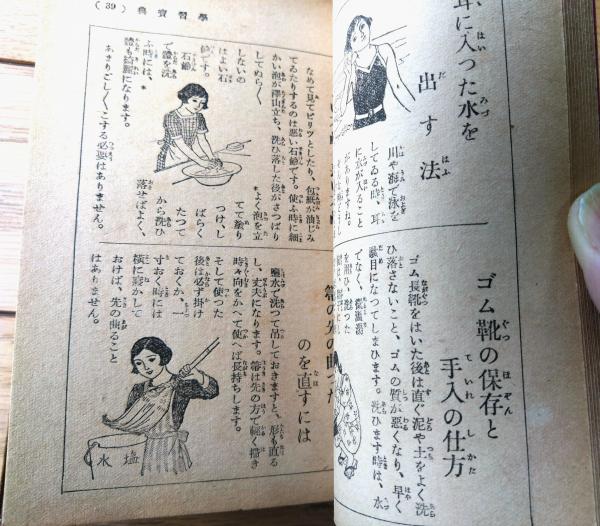 耳に入つた水を
出す法
川や海で泳を
してゐる時、耳
に水が入ること
がありますね。
ゴム靴の保存と
手入の仕方
ゴム長靴をはいた後は直ぐ泥や土をよく洗
ひ落さないこと、ゴムの質が悪くなり、早く
駄目になつてしまひます。洗ひます時は、水
でなく、微温湯
を用ひ、洗つた
(39) 典寶習學
なめて見てピリツとしたり、包紙が油じみ
てゐたりするのは悪い石鹼です。使ふ時に細
かい泡が澤山立ち、洗ひ落した後がさつぱり
してぬらく
しないの
はよい石
鹼です。
石鹼
で體を洗
ふ時には、*
*よく泡を立
てて塗り
つけ、し
ばらく
たつて
から洗ひ
落せばよく、
あまりごしくこする必要はありません。
體も綺麗になります。
箒の先の曲つた
のを直すには
鹽水で洗つて吊しておきますと、形も直る
し、丈夫になります。箒は先の方で輕く掃き
時々向をかへて使へば長持ちします。
そして使つた
後は必ず掛け
ておくか、一
寸おく時には
横に寢かして
おけば、先の曲ること
はありません。
水塩